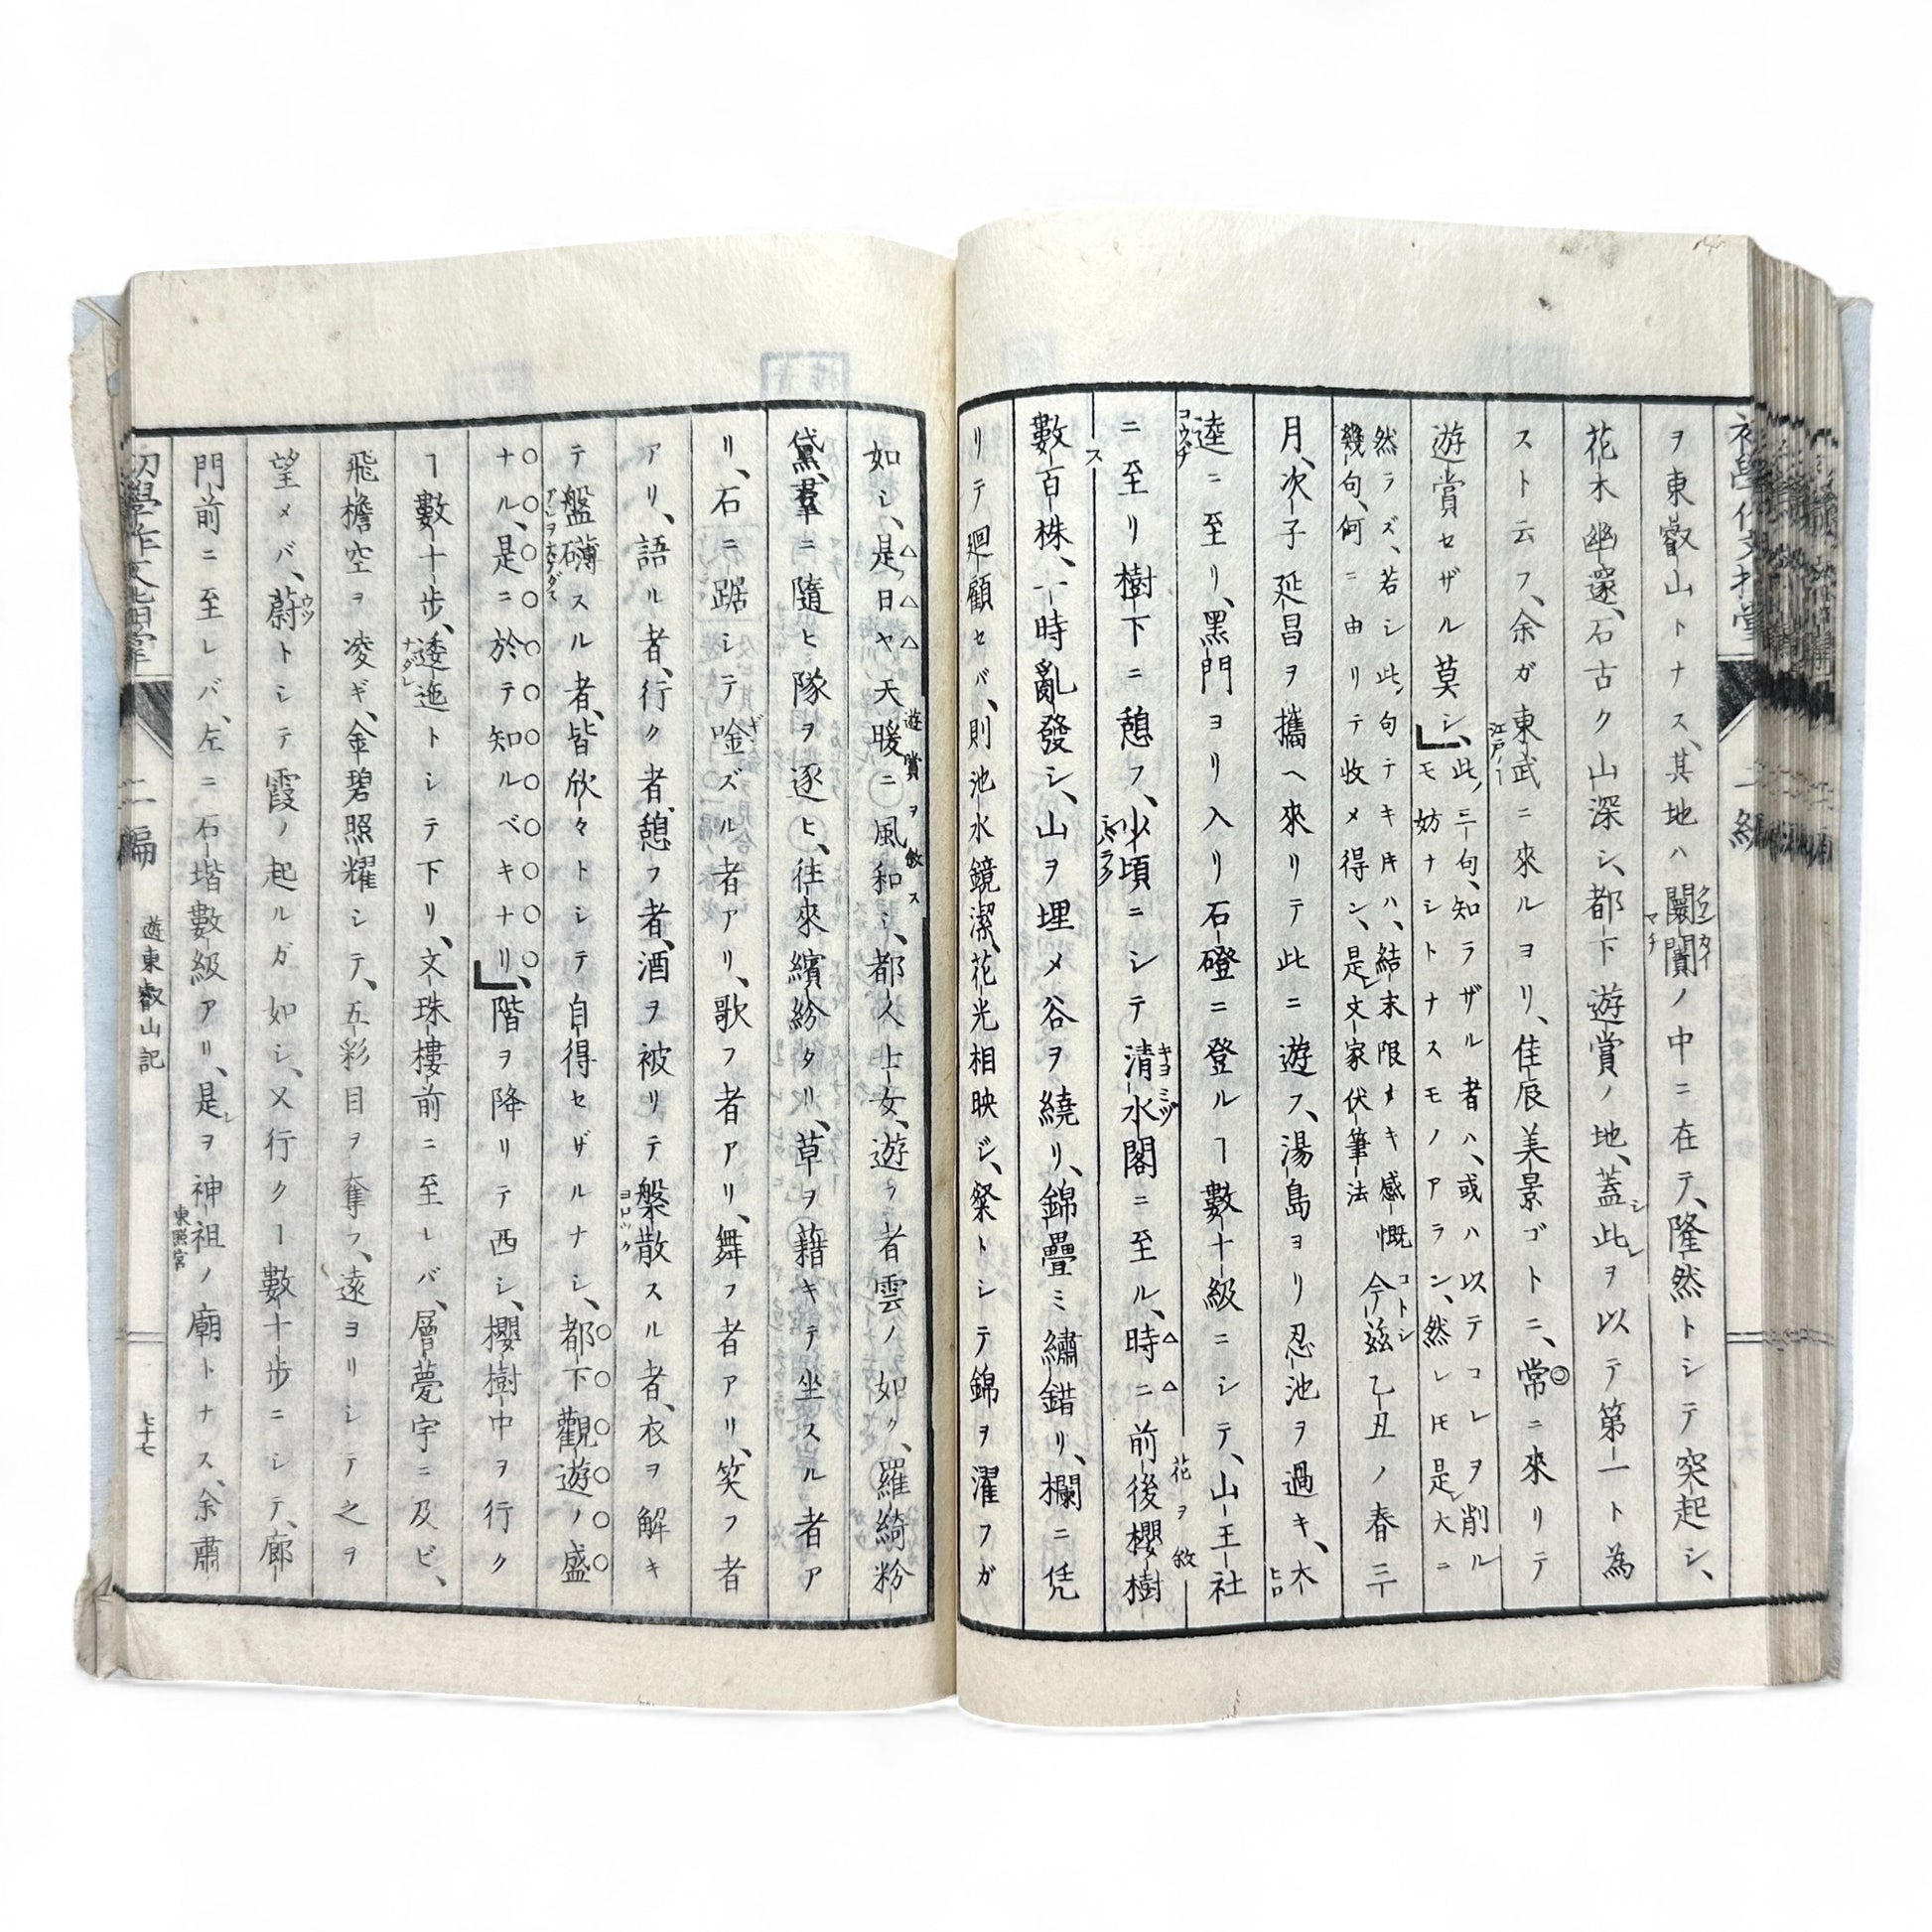 ヲ東叡山トナス、其地ハ闤闠ノ中ニ在テ、隆然トシテ突起シ、
花木幽邃、石古ク山深シ、都下遊賞ノ地、蓋シ此レヲ以テ第一ト為
ストム云フ、余ガ東武ニ來ルヨリ、佳辰美景ゴトニ、常ニ來リテ
遊賞セザル莫シ、
此ノ三句、知ラザル者ハ、或ハ以テコレヲ削ル
モ妨ナシトナスモノアラン、然レ𪜈是レ大ニ
然ラズ、若シ此ノ句テキキハ、結末限ナキ感慨
幾句、何ニ由リテ收メ得ン、是レ文家伏筆法
今茲乙丑ノ春三
月、次子延昌ヲ攜ヘ來リテ此ニ遊フ、湯島ヨリ忍池ヲ過キ、大
逵ニ至リ、黑門ヨリ入リ石磴ニ登ルヿ數十級ニシテ、山王社
ニ至リ樹下ニ憩フ、少頃ニシテ清水閣ニ至ル、時ニ前後櫻樹
數百株、一時亂發シ、山ヲ埋メ谷ヲ繞リ、錦疊ミ繡錯リ、欄ニ凭
リテ廻顧セバ、則池水鏡潔、花光相映ジ、粲トシテ錦ヲ濯フガ
如シ、是ノ日ヤ天暖ニ風和シ、都人士女、遊フ者雲ノ如ク、羅綺粉
黛、羣ニ隨ヒ隊ヲ逐ヒ、往來繽紛タリ、草ヲ藉キテ坐スル者ア
リ、石ニ踞シテ唫ズル者アリ、歌フ者アリ、舞フ者アリ、笑フ者
アリ、語ル者、行ク者、憩フ者、酒ヲ被リテ槃散スル者、衣ヲ解キ
テ盤礴スル者、皆欣々トシテ自得セザルナシ、都下觀遊ノ盛
ナル、是ニ於テ知ルベキナリ、階ヲ降リテ西シ、櫻樹中ヲ行ク
ヿ數十步、逶迤トシテ下リ、文珠樓前ニ至レバ、層甍宇ニ及ビ、
飛檐空ヲ凌ギ、金碧照耀シテ、五彩目ヲ奪フ、遠ヨリシテ之ヲ
望メバ、蔚トシテ霞ノ起ルガ如シ、又行クヿ數十步ニシテ、廊
門前ニ至レバ、左ニ石堦數級アリ、是レヲ神祖ノ廟トナス、余肅
二編
遊東叡山記
七十七